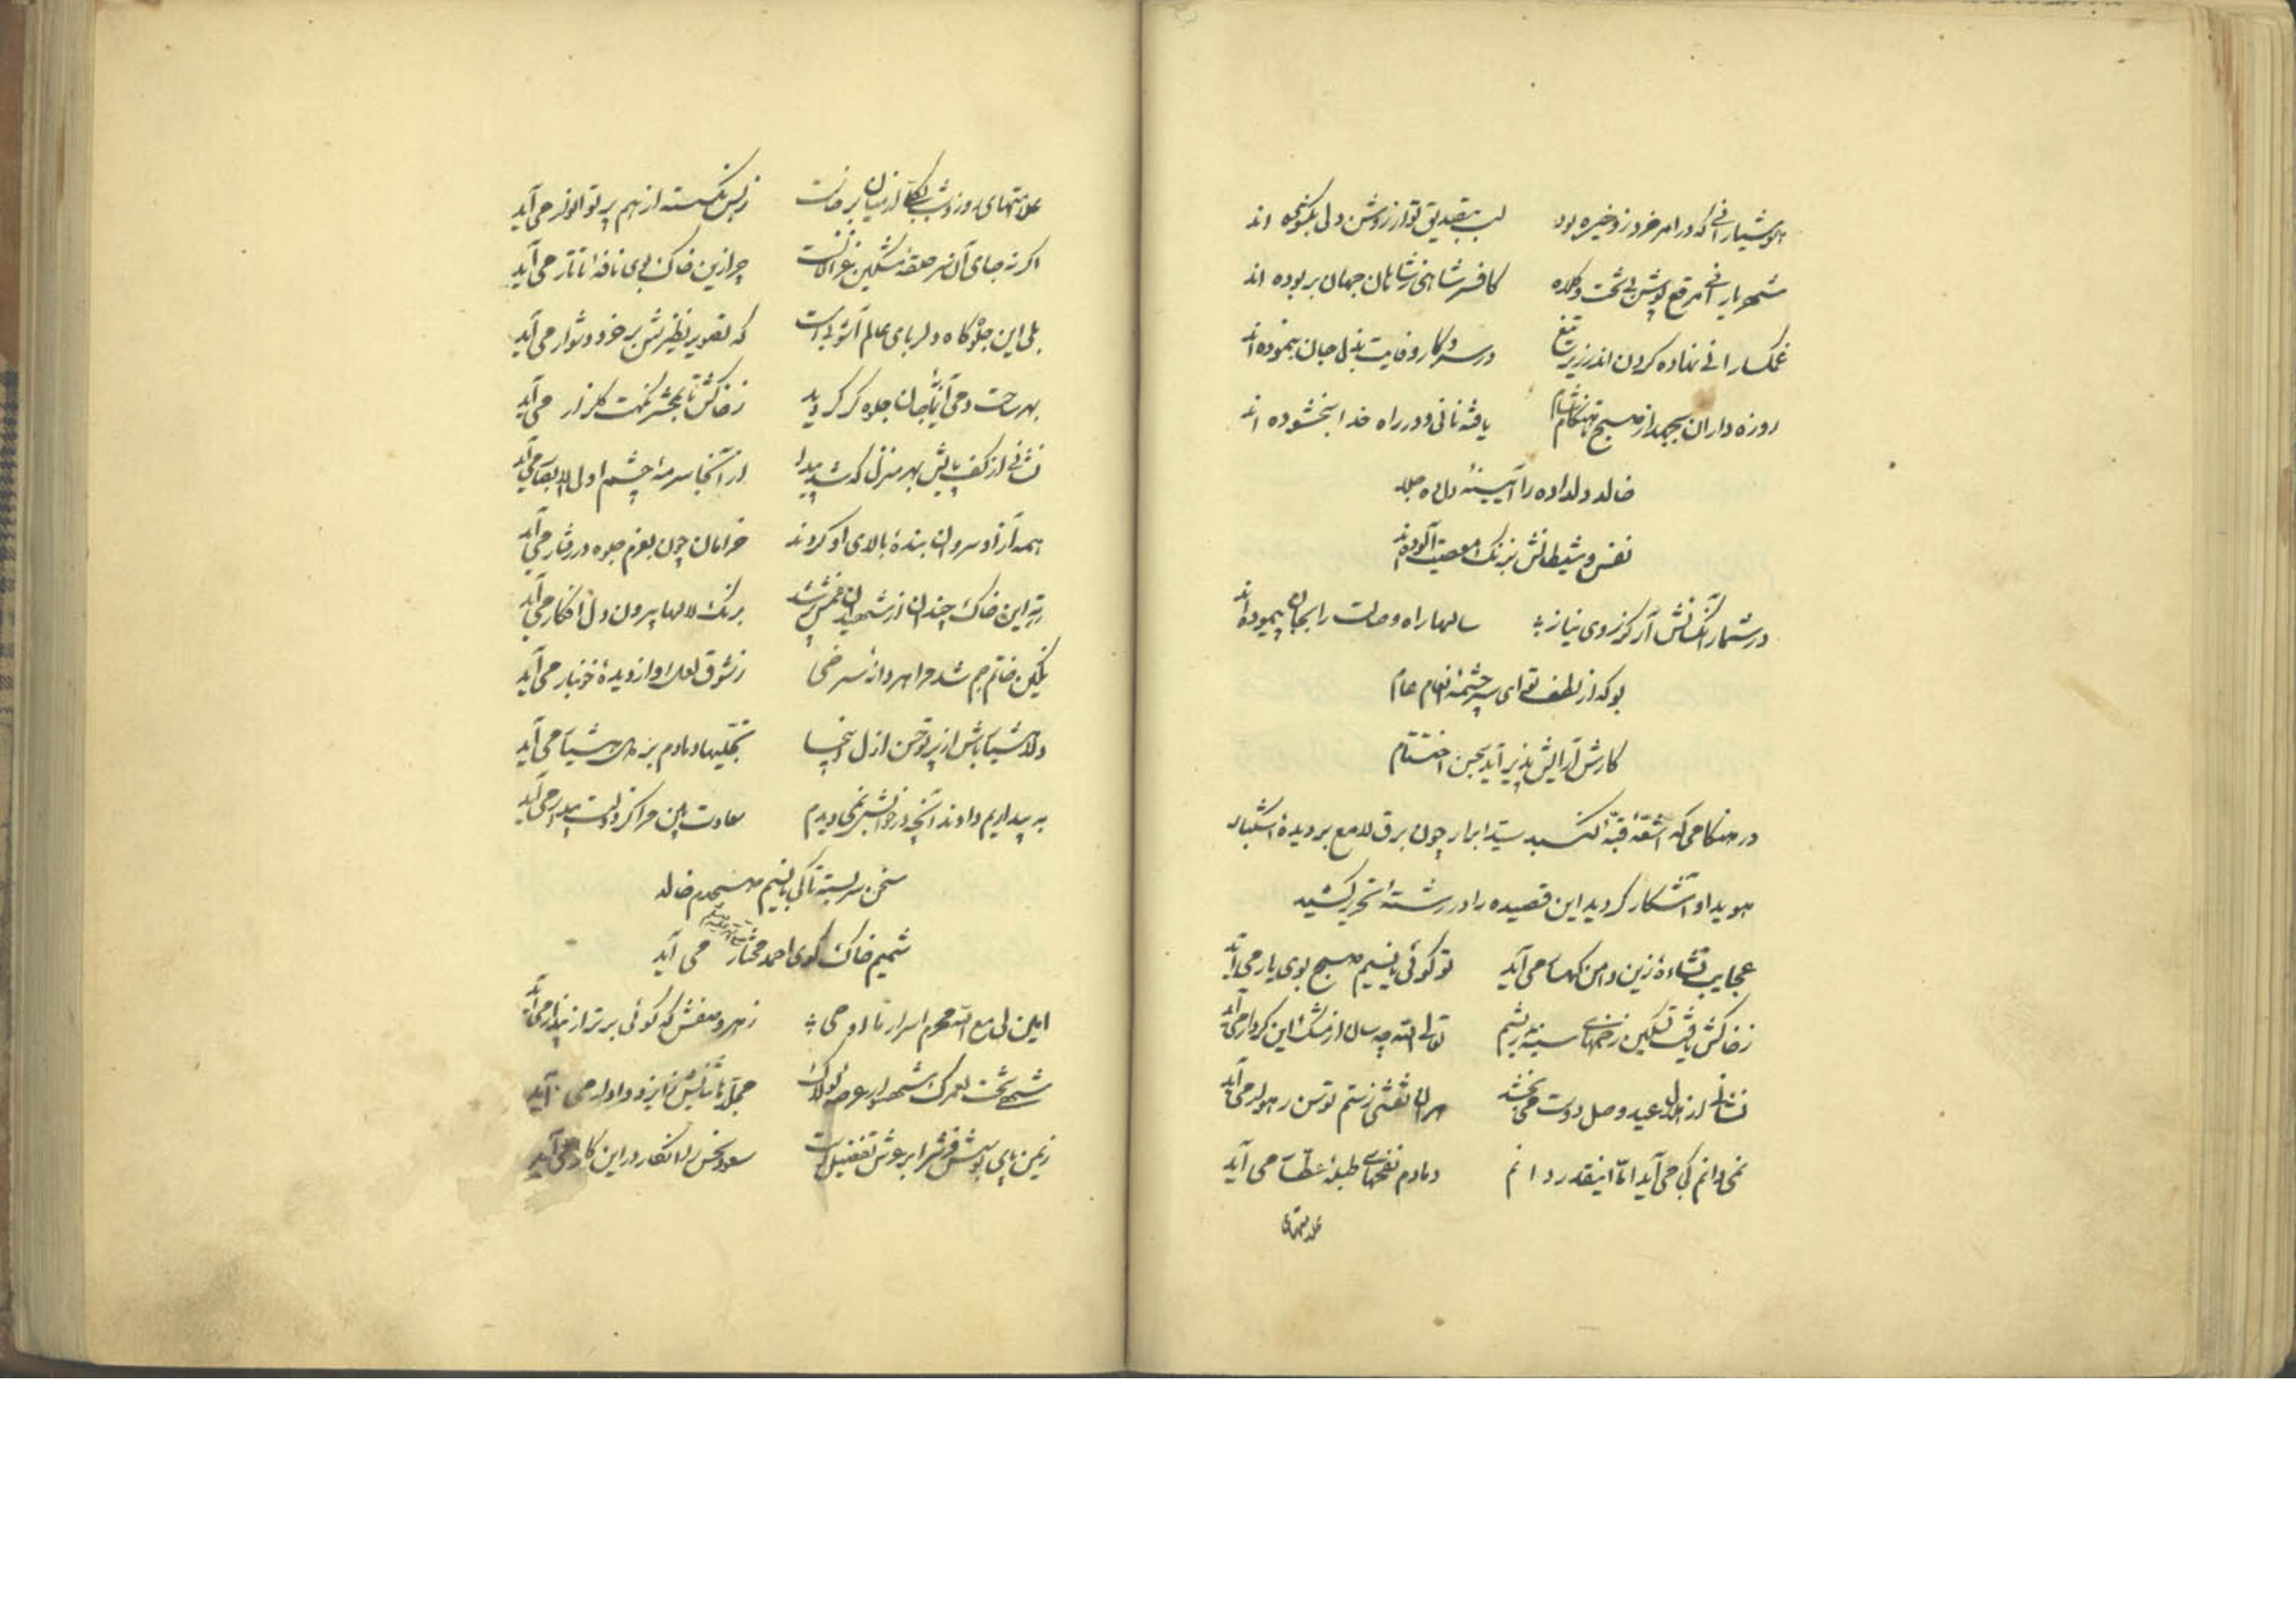 هوشیارانی که در امر خرد زو خیره بود لب بتصدیق تو از روشن دلی بگشوده اند
شهریارانی مرقع پوش بی تخت و کلاه کافسر شاهی ز شاهان جهان بربوده اند
غمکسارانی نهاده کردن اندر زیر تیغ در سر و کار وفایت بذل جان بنموده اند
روزه داران بجهد از صبح تا هنکام شام یافته نانی و در راه خدا بخشوده اند
خالد دلداده را آیینهٔ دل ده جلا
نفس و شیطانش بزنک معصیت آلوده اند
در شمار آنکسانش آر کز روی نیاز سالها راه وصالت را بجان پیموده اند
بو که از لطف تو ای سرچشمهٔ انعام عام
کارش آرایش پذیر آید بحسن اختتام
در هنکامی که اشعهٔ قبهٔ کنبد سید ابرار چون برق لامع بر دیدهٔ اشکبار
هویدا و آشکار کردید این قصیده را در رشتهٔ تحریر کشید
عجایب نشاءهٔ زین دامن کهسار می آید تو کوئی با نسیم صبح بوی یار می آید
ز خاکش یافت تسکین زخمهای سینهٔ ریشم تعالی الله چه سان از مشک این کردار می آید
نشانی از هلال عید وصل دوست می بخشد هر آن نقشی ز سم توسن رهوار می آید
نمی دانم کی می آید اما اینقدر دانم دمادم نفحهای طبلهٔ عطار می آید
علامتهای
علامتهای روز و شب بکلی از میان برخاست ز بس نکسسته از هم پرتو انوار می آید
اکر نه جای آن سر حلقهٔ مشکین غزالانست چرا زین خاک بوی نافهٔ تاتار می آید
بلی این جلوه کاه دلربای عالم آشوبی است که تصویر نظیرش بر خرد دشوار می آید
بهر ساحت دمی آن یار جان جلوه کر کردید ز خاکش تا بمحشر نکهت کلزار می آید
نشانی از کف پایش بهر منزل که شد پیدا از آنجا سرمهٔ چشم اولی الابصار می آید
همه آزاد سروان بندهٔ بالای او کردند خرامان چون بعزم جلوه در رفتار می آید
ته این خاک چندان از شهیدان غمش پر شد برنک لالها بیرون دل افکار می آید
نکین خاتم جم شد مرا هر دانهٔ سرخی ز شوق لعل او از دیدهٔ خونبار می آید
دلا هشیار باش از پرتو حسن ازل اینجا تجلیها دمادم بر دل هشیار می آید
به بیداریم دادند آنچه در خوابش نمی دیدم سعادت بین مرا کز دولت بیدار می آید
سخن سربسته تا کی با نسیم صبحدم خالد
شمیم خاک کوی احمد مختار می آید
امین لی مع الله محرم اسرار ما اوحی ز هر وصفش که کوئی برتر از پندار می آید
شه تخت لعمرک شهسوار عرصهٔ لولاک
زمین پای بوسش فرش را بر عرش تفضیل است